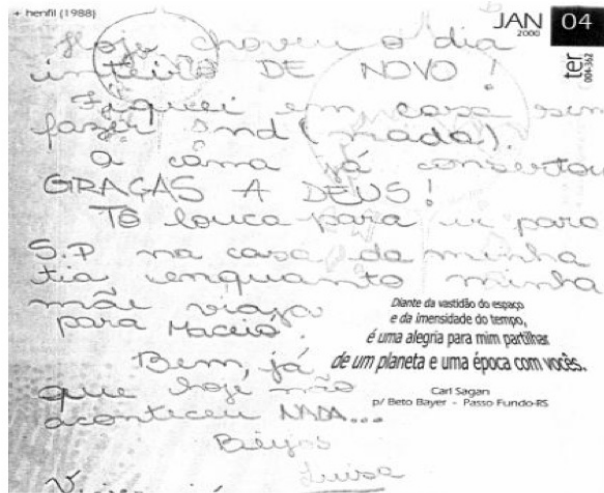 + henfil (1988)
JAN
2000
04
ter
004-362
Hoje choveu o dia
inteiro DE NOVO!
Fiquei em casa sem
fazer Snd (nada).
A câma já consertou
GRAÇAS A DEUS!
Tô louca para ir para
S.P na casa da minha
tia enquanto minha
mãe viaja
para Maceió.
Bem, já
que hoje não
aconteceu NADA...
Beijos
Luisa
Diante da vastidão do espaço
e da imensidade do tempo,
é uma alegria para mim partilhar
de um planeta e uma época com vocês.
Carl Sagan
p/ Beto Bayer - Passo Fundo-RS